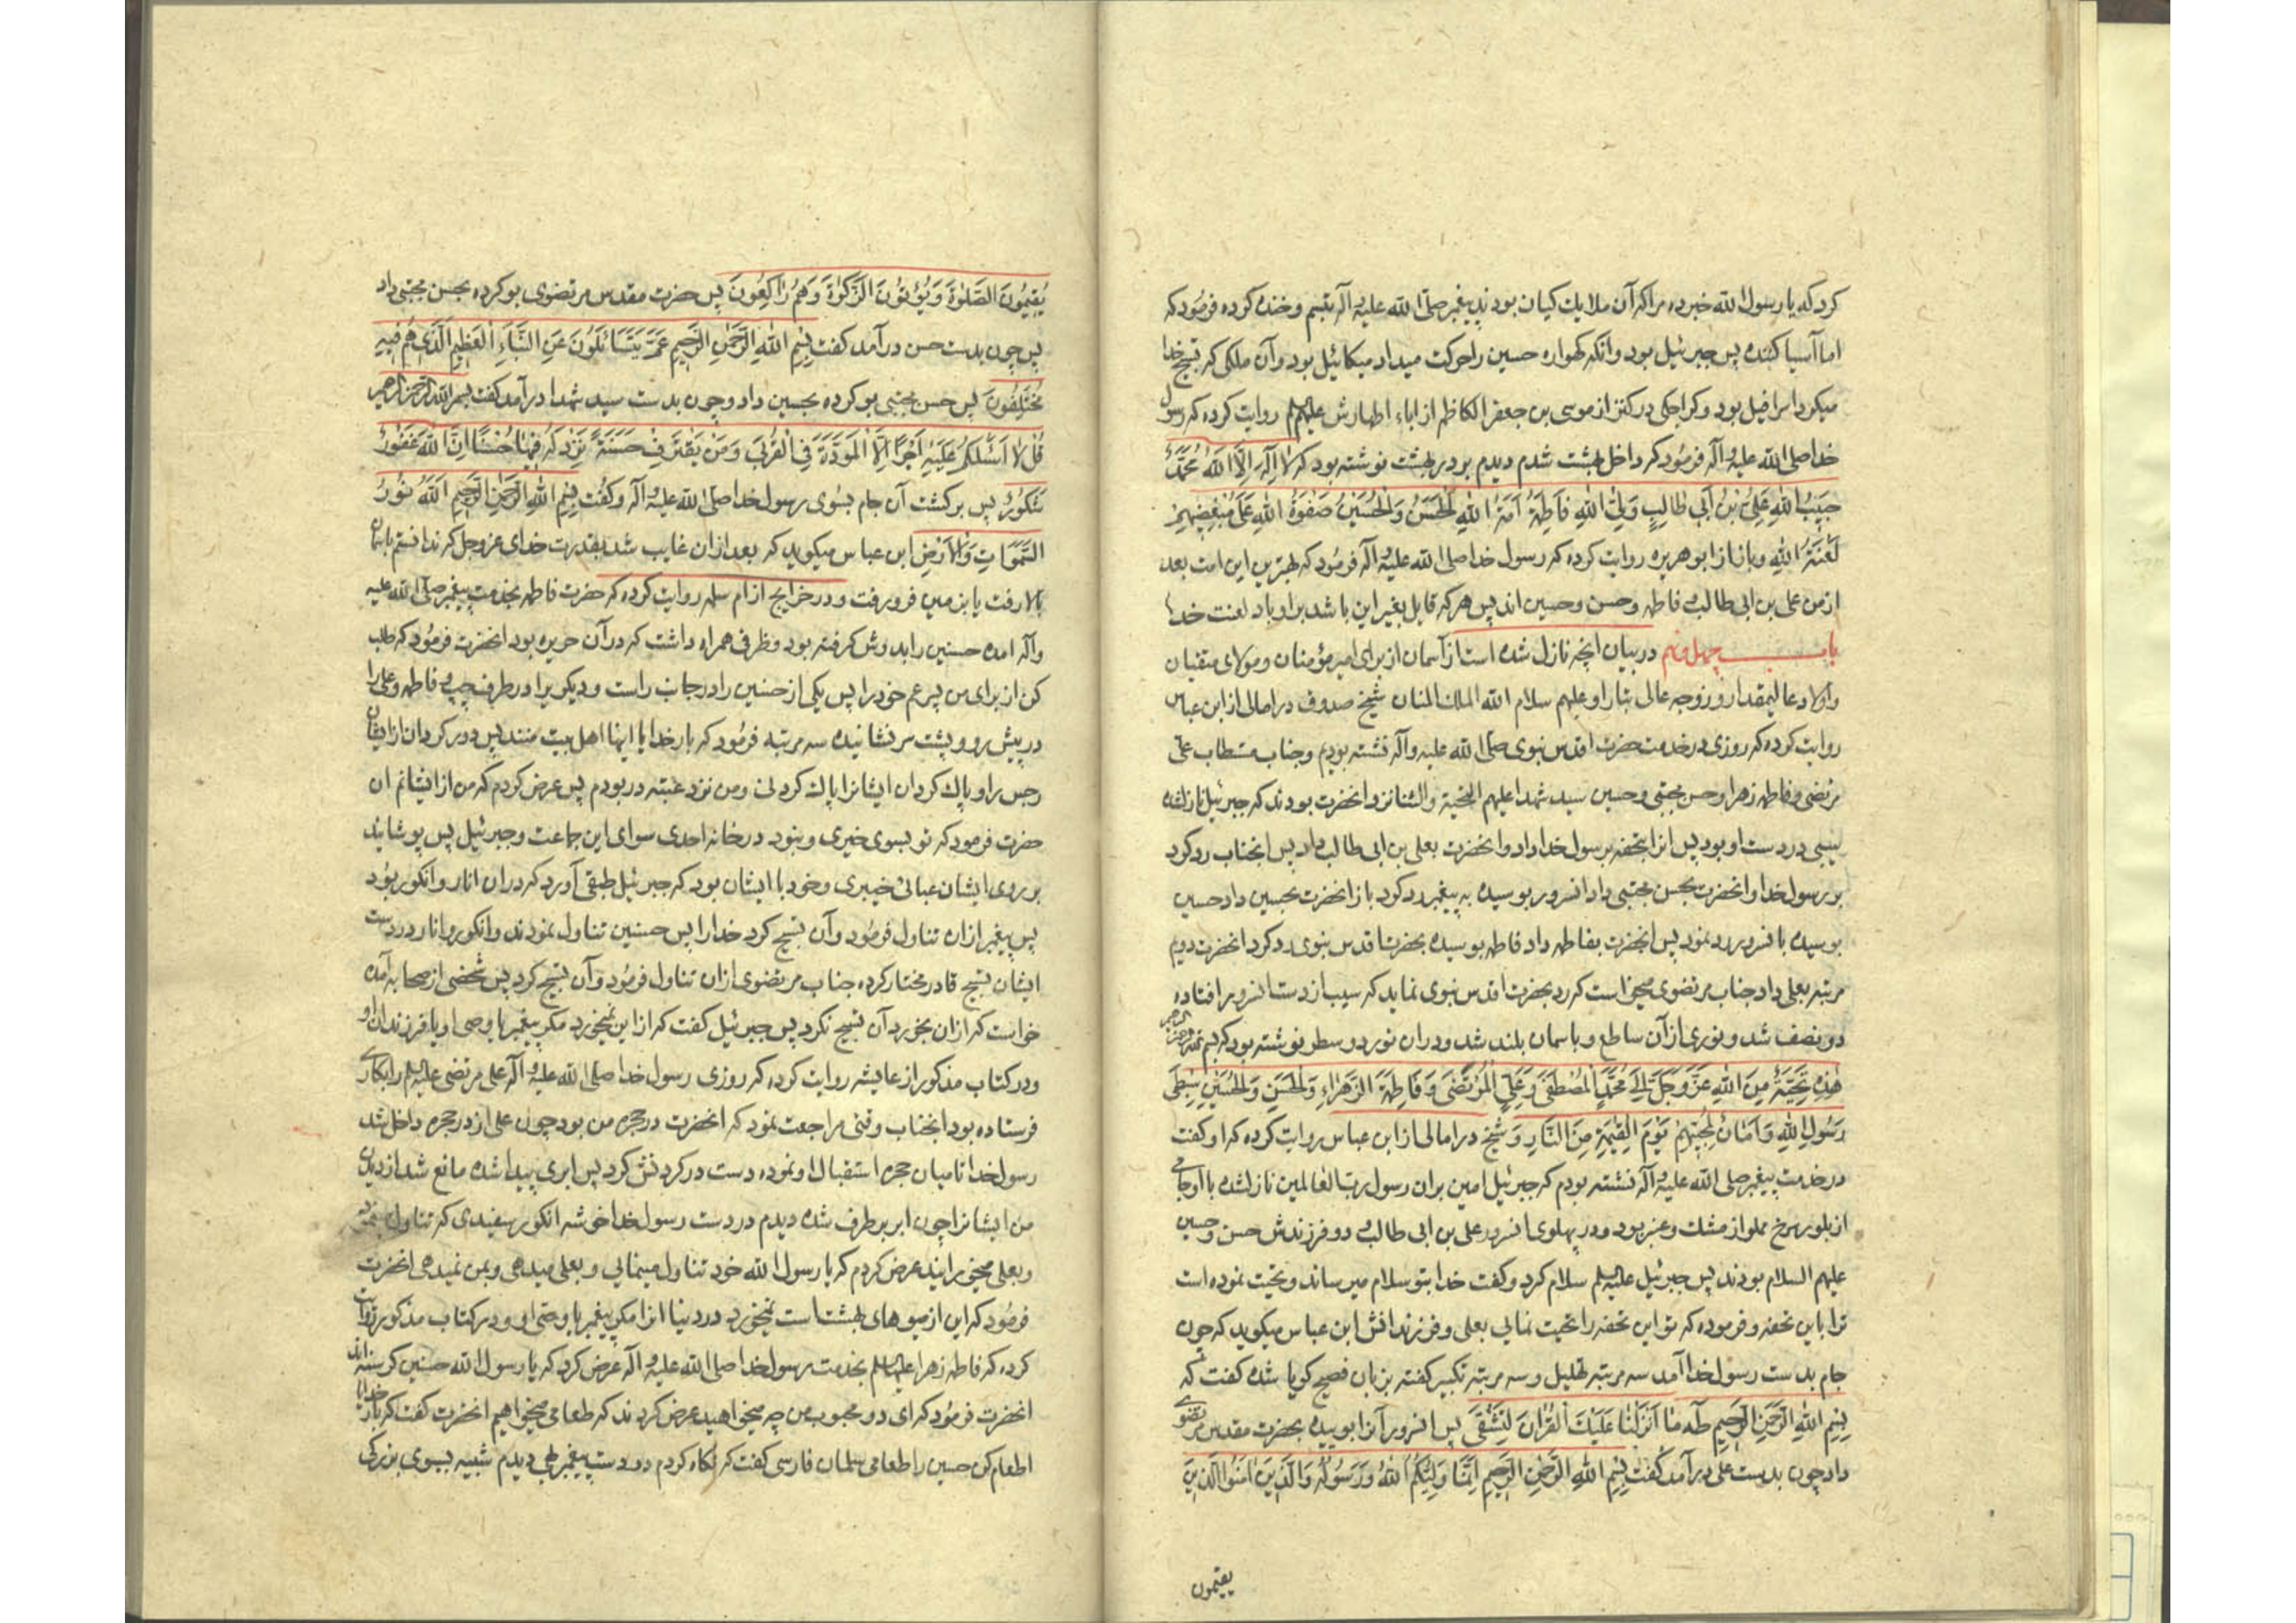 کرد که یا رسول الله خبر ده مرا که آن ملایك کیان بودند پیغمبر صلی الله علیه و آله تبسم و خنده کرده فرمود که
اما آسیا کننده پس جبرئیل بود و انکه کهواره حسین را حرکت میداد میکائیل بود و آن ملکی که تسبیح خدا
میکرد اسرافیل بود و کراجکی در کنز از موسی بن جعفر الکاظم از اباء اطهارش علیهم السلم روایت کرده که رسول
خدا صلی الله علیه و آله فرمود که داخل بهشت شدم دیدم بر در بهشت نوشته بود که لا اله الا الله محمد
حبیب الله علی بن ابی طالب ولی الله فاطمة امة الله الحسن والحسین صفوة الله علی مبغضیهم
لعنة الله و باز از ابو هریره روایت کرده که رسول خدا صلی الله علیه و آله فرمود که بهترین این امت بعد
از من علی بن ابی طالب و فاطمه و حسن و حسین اند پس هر که قایل بغیر این باشد بر او باد لعنت خدا
باب چهل و نهم در بیان انچه نازل شده است از آسمان از برای امیر مؤمنان و مولای متقیان
و اولاد عالیمقدار و زوجه عالی تبار او علیهم سلام الله الملك المنان شیخ صدوق در امالی از ابن عباس
روایت کرده که روزی در خدمت حضرت اقدس نبوی صلی الله علیه و آله نشسته بودیم و جناب مستطاب علی
مرتضی و فاطمه زهرا و حسن مجتبی و حسین سید شهدا علیهم التحیة والثنا نزد انحضرت بودند که جبرئیل نازلشده
سیبی در دست او بود پس انرا بتحفه برسول خدا داد و انحضرت بعلی بن ابی طالب داد پس انجناب رد کرد
بر رسول خدا و انحضرت بحسن مجتبی داد انسرور بوسیده به پیغمبر رد کرد باز انحضرت بحسین داد حسین
بوسیده بانسرور رد نمود پس انحضرت بفاطمه داد فاطمه بوسیده بحضرت اقدس نبوی رد کرد انحضرت دویم
مرتبه بعلی داد جناب مرتضوی میخواست که رد بحضرت اقدس نبوی نماید که سیب از دست انسرور افتاده
دو نصف شد و نوری از آن ساطع و باسمان بلند شد و در ان نور دو سطر نوشته بود که بسم الله الرحمن الرحیم
هذه تحیة من الله عز و جل الی محمد المصطفی و علی المرتضی و فاطمة الزهراء والحسن والحسین سبطی
رسول الله و امان لمحبیهم یوم القیمة من النار و شیخ در امالی از ابن عباس روایت کرده که او کفت
در خدمت پیغمبر صلی الله علیه و آله نشسته بودم که جبرئیل امین بران رسول رب العالمین نازلشده با او جامی
از بلور سرخ مملو از مشك و عنبر بود و در پهلوی انسرور علی بن ابی طالب و دو فرزندش حسن و حسین
علیهم السلام بودند پس جبرئیل علیه السلم سلام کرد و کفت خدا بتو سلام میرساند و تحیت نموده است
ترا باین تحفه و فرموده که تو این تحفه را تحیت نمائی بعلی و فرزندانش ابن عباس میکوید که چون
جام بدست رسول خدا آمد سه مرتبه تهلیل و سه مرتبه تکبیر کفته بزبان فصیح کویا شده کفت که
بسم الله الرحمن الرحیم طه ما انزلنا علیك القران لتشقی پس انسرور آنرا بوییده بحضرت مقدس مرتضوی
داد چون بدست علی در آمد کفت بسم الله الرحمن الرحیم انما ولیکم الله ورسوله والذین امنوا الذین
یقیمون
یقیمون الصلوة ویؤتون الزکوة وهم راکعون پس حضرت مقدس مرتضوی بو کرده بحسن مجتبی داد
پس چون بدست حسن در آمد کفت بسم الله الرحمن الرحیم عم یتسائلون عن النباء العظیم الذی هم فیه
مختلفون پس حسن مجتبی بو کرده بحسین داد و چون بدست سید شهدا در آمد کفت بسم الله الرحمن الرحیم
قل لا اسئلکم علیه اجرا الا المودة فی القربی ومن یقترف حسنة نزد له فیها حسنا ان الله غفور
شکور پس برکشت آن جام بسوی رسول خدا صلی الله علیه و آله و کفت بسم الله الرحمن الرحیم الله نور
السموات والارض ابن عباس میکوید که بعد ازان غایب شد بقدرت خدای عز و جل که ندانستم باسمان
بالا رفت یا بزمین فرو رفت و در خرایج از ام سلمه روایت کرده که حضرت فاطمه بخدمت پیغمبر صلی الله علیه
و آله امده حسنین را بدوش کرفته بود و ظرفی همراه داشت که در آن حریره بود انحضرت فرمود که طلب
کن از برای من پسر عم خود را پس یکی از حسنین را در جانب راست و دیکریرا در طرف چپ و فاطمه و علی را
در پیش رو و پشت سر نشانیده سه مرتبه فرمود که بار خدایا اینها اهل بیت منند پس دور کردان از ایشان
رجس را و پاك کردان ایشانرا پاك کردنی و من نزد عتبه در بودم پس عرض کردم که من از ایشانم ان
حضرت فرمود که تو بسوی خیری و نبود در خانه احدی سوای این جماعت و جبرئیل پس پوشانید
بر روی ایشان عبائی خیبری و خود با ایشان بود که جبرئیل طبقی آورد که دران انار و انکور بود
پس پیغمبر ازان تناول فرمود و آن تسبیح کرد خدا را پس حسنین تناول نمودند و انکور و انار در دست
ایشان تسبیح قادر مختار کرده جناب مرتضوی ازان تناول فرمود و آن تسبیح کرد پس شخصی از صحابه آمده
خواست که ازان بخورد آن تسبیح نکرد پس جبرئیل کفت که از این نمیخورد مکر پیغمبر یا وصی او یا فرزندان او
و در کتاب مذکور از عایشه روایت کرده که روزی رسول خدا صلی الله علیه و آله علی مرتضی علیه السلم را بکاری
فرستاده بود انجناب وقتی مراجعت نمود که انحضرت در حجره من بود چون علی از در حجره داخل شد
رسول خدا تا میان حجره استقبال او نموده دست در کردنش کرد پس ابری پیدا شده مانع شد از دیدن
من ایشانرا چون ابر برطرف شده دیدم در دست رسول خدا خوشه انکور سفیدی که تناول
و بعلی میخوراند عرض کردم که یا رسول الله خود تناول مینمائی و بعلی میدهی و بمن نمیدهی انحضرت
فرمود که این از میوهای بهشت است نمیخورد در دنیا انرا مکر پیغمبر یا وصی او و در کتاب مذکور روایت
کرده که فاطمه زهرا علیها السلم بخدمت رسول خدا صلی الله علیه و آله عرض کرد که یا رسول الله حسنین کرسنه اند
انحضرت فرمود که ای دو محبوب من چه میخواهید عرض کردند که طعامی میخواهیم انحضرت کفت که بار خدایا
اطعام کن حسنین را طعامی سلمان فارسی کفت که نکاه کردم در دست پیغمبر بهی دیدم شبیه بسبوی بزرکی